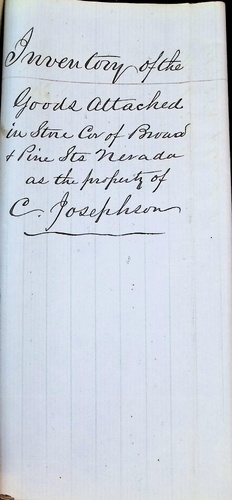 Inventory of the
Goods Attached
in Store Cor of Broad
& Pine Sts Nevada
as the property of
C. Josephson